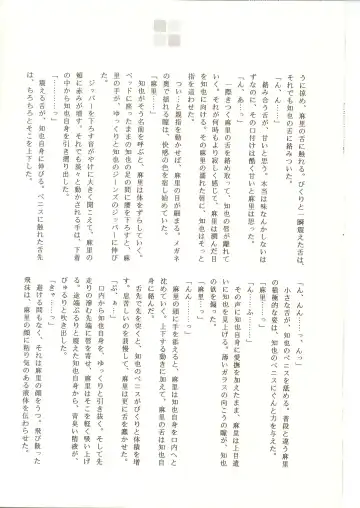 うに掠め、麻里の舌に触れる。びくりと一瞬震えた舌は、
それでも知也の舌に絡みついた。
「ん、ん……」
絡み合う舌が、けいと思う。本当は味なんかしないは
ずなのに、その口付けは酷く甘いと麻里は思った。
「ん、あ…っ」
一際きつく麻里の舌を絡め取って、知也の唇が離れて
いく。それが何時もより寂しく感じて、麻里は潤んだ目
を知也に向ける。その麻里の濡れた唇に、知也はそっと
指を這わせた。
つい…と親指を動かせば、麻里の目が細まる。メガネ
の奥で揺れる瞳は、快感の色を宿し始めていた。
「麻里…」
知也がそう名前を呼ぶと、麻里は体をずらしていく。
ベッドに座ったままの知也の足の間に腰を下ろすと、麻
里の手が、ゆっくりと知也のジーンズのジッパーに伸び
た。
ジッパーを下ろす音がやけに大きく聞こえて、麻里の
頬に赤みが増す。それでも怖々と動かされる手は、下着
の中から知也自身を引き摺り出した。
「………っ」
震える舌が、知也自身に伸びる。ペニスに触れた舌先
は、ちろちろとそこを上下した。
「ん、んん……、っ」
小さな舌が、知也のペニスを舐める。普段と違う麻里
の積極的な姿は、知也のペニスにぐんと力を与えた。
「麻里…っ」
「ん、ふ…」
その声に知也自身に愛撫を加えたまま、麻里は上目遣
いに知也を見上げる。薄いガラスの向こうの瞳が、知也
の欲を煽った。
「麻里…っ」
「んん…」
麻里の頭に手を添えると、麻里は知也自身を口内へと
沈めていく。上下する動きに加えて、麻里の舌は知也自
身に絡んだ。
舌先で先を突くと、知也のペニスがびくりと体積を増
す。息苦しいのを我慢して、麻里は更に舌を蠢かせた。
「ぷ、ぁ…」
口内から知也自身を、ゆっくりと引き抜く。そして先
走りの滲む先端に唇を寄せ、麻里はそこを軽く吸い上げ
る。途端ぶるりと震えた知也自身から、青臭い精液が、
びゅるりと吹き出した。
「きゃ……っ」
避ける間もなく、それは麻里の顔をうつ。飛び散った
飛沫は、麻里の顔に粘り気のある液体を伝わらせた。